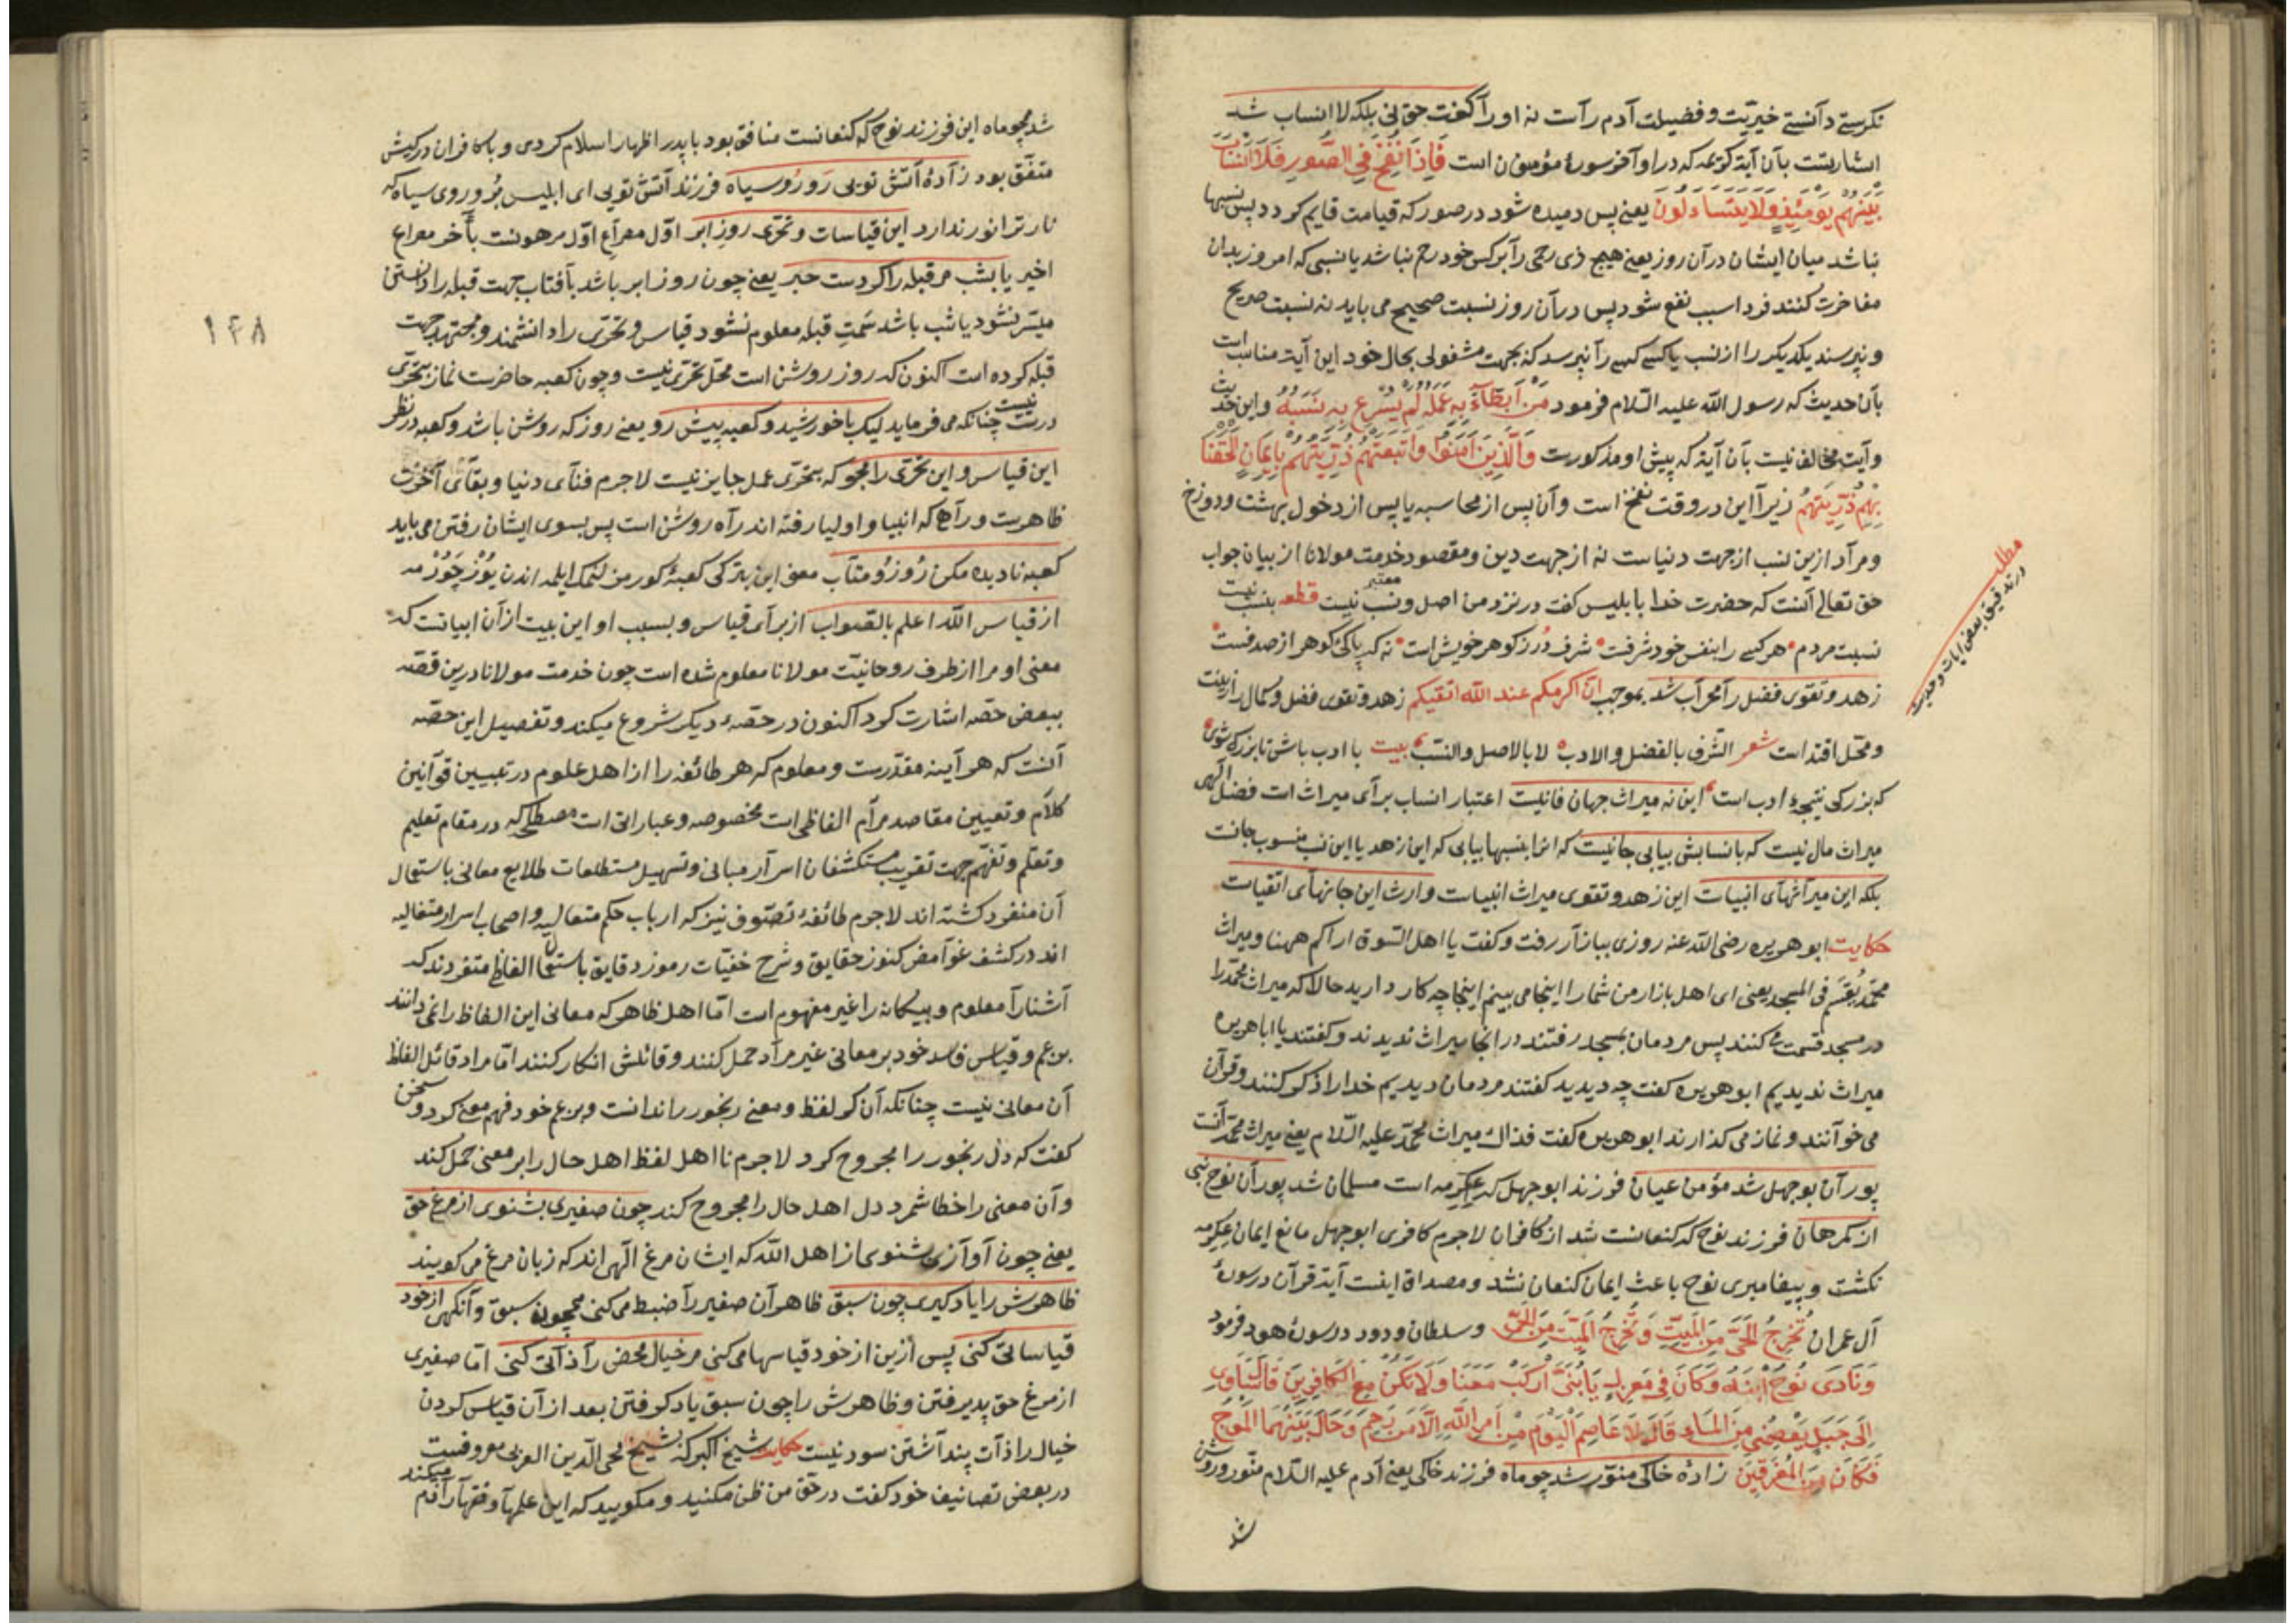 نکرستی دآنستی خیریّت و فضیلت آدم رآست نه اورآ کفت حق نی بلکه لا انساب شد
اشارتست بآن آیهٔ کریمه که دراوآخر سورهٔ مؤمنون است فَاِذَا نُفِخَ فِی الصُّورِ فَلَا اَنْسَابَ
بَیْنَهُمْ یَوْمَئِذٍ وَلَا یَتَسَاءَلُونَ یعنی پس دمیده شود در صور که قیامت قایم کردد پس نسبها
نباشد میان ایشان درآن روز یعنی هیچ ذی رحمی رآ بر کس خود رحم نباشد یا نسبی که امروز بدان
مفاخرت کنند فردا سبب نفع شود پس درآن روز نسبت صحیح می باید نه نسبت صریح
و نپرسند یکدیکر را از نسب یا کسی کسی رآ نپرسد که بجهت مشغولی بحال خود این آیت مناسب است
بآن احدیث که رسول الله علیه السّلام فرمود مَنْ اَبْطَأَ بِهِ عَمَلُهُ لَمْ یُسْرِعْ بِهِ نَسَبُهُ و این حدیث
وآیت مخالف نیست بآن آیة که پیش او مذکورست وَالَّذِینَ آمَنُوا وَاتَّبَعَتْهُمْ ذُرِّیَّتُهُمْ بِاِیمَانٍ اَلْحَقْنَا
بِهِمْ ذُرِّیَّتَهُمْ زیرآ این در وقت نفخ است وآن پس از محاسبه یا پس از دخول بهشت ودوزخ
ومرآد ازین نسب از جهت دنیاست نه از جهت دین ومقصود خدمت مولانا از بیان جواب
حق تعالی آنست که حضرت خدا با بلیس کفت در نزد من اصل و نسب معتبر نیست قطعه بنسب نیست
نسبت مردم هر کسی را بنفس خود شرفست شرف دُرّ ز کوهر خویش است نه که پاکئ کوهر از صدفست
زهد و تقوی فضل را محرآب شد بموجب انّ اکرمکم عند الله اتقیکم زهد و تقوی فضل وکمال را زینت
ومحل اقتداست شعر الشّرف بالفضل والادب لا بالاصل والنسب بیت با ادب باش تا بزرک شوی
که بزرکی نتیجهٔ ادب است این نه میراث جهان فانیست اعتبار انساب برآی میراث است فضل الهی
میراث مال نیست که بانسابش بیابی جانیست که انرا بنسبها بیابی که این زهد یا این نسب منسوب جانست
بلکه این میرآثهآی انبیاست این زهد وتقوی میراث انبیاست وارث این جانهآی اتقیاست
حکایت ابو هریره رضی الله عنه روزی ببازآر رفت وکفت یا اهل السّوق اراکم ههنا ومیراث
محمّد یُقسَم فی المسجد یعنی ای اهل بازار من شمارا اینجا می بینم اینجا چه کار دارید حالا که میراث محمّد را
در مسجد قسمت می کنند پس مردمان بمسجد رفتند درانجا میراث ندیدند وکفتند یا اباهریره
میراث ندیدیم ابو هریره کفت چه دیدید کفتند مردمان دیدیم خدارا ذکر کنند وقرآن
می خوآنند ونماز می کذارند ابو هریره کفت فذالک میراث محمّد علیه السّلام یعنی میراث محمّد آنست
پور آن بوجهل شد مؤمن عیان فرزند ابو جهل که عِکرِمه است مسلمان شد پور آن نوح نبی
از کمرهان فرزند نوح که کنعانست شد از کافران لاجرم کافری ابو جهل مانع ایمان عِکرِمه
نکشت و پیغامبری نوح باعث ایمان کنعان نشد ومصداق اینست آیت قرآن در سورهٔ
آل عمران تُخْرِجُ الْحَیَّ مِنَ الْمَیِّتِ وَتُخْرِجُ الْمَیِّتَ مِنَ الْحَیِّ وسلطان ودود در سورهٔ هود فرمود
وَنَادَی نُوحٌ ابْنَهُ وَکَانَ فِی مَعْزِلٍ یَا بُنَیَّ ارْکَبْ مَعَنَا وَلَا تَکُنْ مَعَ الْکَافِرِینَ قَالَ سَآوِی
اِلَی جَبَلٍ یَعْصِمُنِی مِنَ الْمَاءِ قَالَ لَا عَاصِمَ الْیَوْمَ مِنْ اَمْرِ اللهِ اِلَّا مَنْ رَحِمَ وَحَالَ بَیْنَهُمَا الْمَوْجُ
فَکَانَ مِنَ الْمُغْرَقِینَ زادهٔ خاکی منوّر شد چو ماه فرزند خاکی یعنی آدم علیه السّلام منوّر وروشن
شد
مطلب
در تدقیق بعض ایات وحدیث
شد همچو ماه این فرزند نوح که کنعانست منافق بود با پدر اظهار اسلام کردی و با کافران در کیش
متفّق بود زآدهٔ آتش تویی رَو رُوسیاه فرزند آتش تویی ای ابلیس برُو روی سیاه که
نار ترا نور ندارد این قیاسات وتحرّی روز ابر اوّل مصرآع اوّل مرهونست بآخر مصراع
اخیر یا بشب مر قبله را کردست حبر یعنی چون روز ابر باشد بآفتاب جهت قبله را دانستن
میسّر نشود یا شب باشد سَمتِ قبله معلوم نشود قیاس وتحرّی را دانشمند ومجتهد جهت
قبله کرده است اکنون که روز روشن است محلّ تحرّی نیست وچون کعبه حاضرست نماز بتحرّی
درست نیست چنانکه می فرماید لیک با خورشید وکعبه پیش رو یعنی روز که روشن باشد وکعبه در نظر
این قیاس و این تحرّی را مجو که بتحرّی عمل جایز نیست لاجرم فنآی دنیا وبقآی آخرت
ظاهرست ورآهی که انبیا و اولیا رفته اند رآه روشن است پس بسوی ایشان رفتن می باید
کعبه نادیده مکن رُو زُو متاب معنی این بترکی کعبهٔ کورمزلنمک ایلمه اندن یُوز چَوُرمه
از قیاس الله اعلم بالصّواب از برآی قیاس و بسبب او این بیت ازآن ابیاتست که
معنی او مرا از طرف روحانیّت مولانا معلوم شده است چون خدمت مولانا درین قصّه
ببعض حصّه اشارت کرد اکنون در حصّهٔ دیکر شروع میکند وتفصیل این حصّه
آنست که هر آینه مقدّرست ومعلوم که هر طائفه را از اهل علوم در تبیین قوآنین
کلآم وتعیین مقاصد مرآم الفاظی است مخصوصه وعباراتی است مصطلحه که در مقام تعلیم
وتعلّم وتفهّم جهت تقریب مستکشفان اسرآر مبانی وتسهیل مستطلعات طلایع معانی باستعمال
آن منفرد کشته اند لاجرم طائفهٔ تصوّف نیز که ارباب حکم متعالیه و اصحاب اسرار متغالیه
اند در کشف غوآمض کنوز حقایق وشرح خفیّات رموز دقایق باستعمال الفاظ متفردند که
آشنارآ معلوم وبیکانه را غیر مفهوم است امّا اهل ظاهر که معانی این الفاظ را نمی دانند
بزعم وقیاس فاسد خود بر معانی غیر مرآد حمل کنند وقائلش انکار کنند امّا مراد قائل الفاظ
آن معانی نیست چنانکه آن کر لفظ ومعنی رنجور را ندانست وبزعم خود فهم معنی کرد وسخن
کفت که دل رنجور را مجروح کرد لاجرم نا اهل لفظ اهل حال را بر معنی حمل کند
وآن معنی را خطا شمرد دل اهل حال را مجروح کند چون صفیری بشنوی از مرغ حق
یعنی چون آوآزی بشنوی از اهل الله که ایشان مرغ الهی اند که زبان مرغ می کویند
ظاهرش را یاد کیری چون سبق ظاهر آن صفیر رآ ضبط می کنی همچون سبق وآنکهی از خود
قیاساتی کنی پس ازین از خود قیاسها می کنی مر خیال محض رآ ذآتی کنی امّا صفیری
از مرغ حق پدیرفتن وظاهرش را چون سبق یاد کرفتن بعد ازآن قیاس کردن
خیال را ذآت پندآشتن سود نیست حکایت شیخ اکبر که بشیخ محی الدّین العربی معروفست
در بعض تصانیف خود کفت در حق من ظن مکنید ومکویید که این علمهآ وفقهآ رآ فهم میکند
۱۴۸